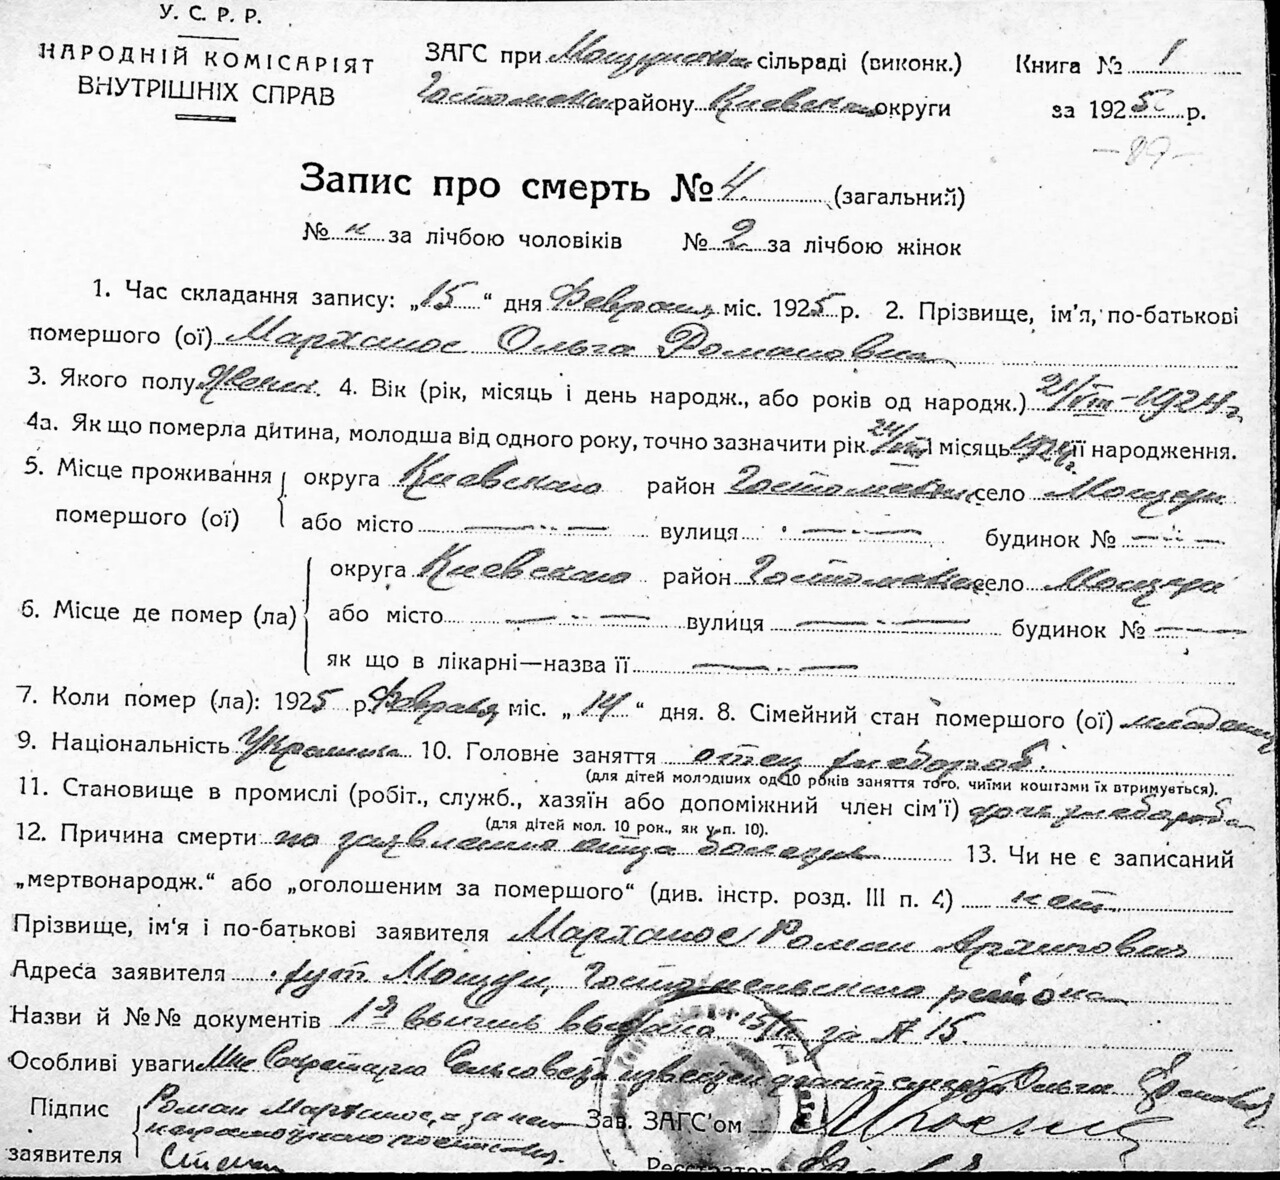 У. С. Р. Р.
НАРОДНІЙ КОМІСАРІЯТ
ВНУТРІШНІХ СПРАВ
ЗАГС при Мощунском сільраді (виконк.)
Гостомельск району Киевской округи
Книга № 1
за 1925 р.
-89-
Запис про смерть № 4 (загальний)
№ н за лічбою чоловіків № 2 за лічбою жінок
1. Час складання запису: „15“ дня Февраля міс. 1925 р. 2. Прізвище, ім'я, по-батькові
помершого (ої) Ольга Романовна
3. Якого полу женск. 4. Вік (рік, місяць і день народж., або років од народж.) 21/VIII-1924 г.
4а. Як що померла дитина, молодша від одного року, точно зазначити рік VIII і місяць 1924 г. її народження.
5. Місце проживання помершого (ої) округа Киевского район Гостомельск село Мощун
або місто — вулиця — будинок № —
6. Місце де помер (ла) округа Киевского район Гостомельск село Мощун
або місто — вулиця — будинок № —
як що в лікарні—назва її —
7. Коли помер (ла): 1925 р. Февраля міс. „14“ дня. 8. Сімейний стан помершого (ої) младенец
9. Національність Украинка 10. Головне заняття отец хлебороб.
(для дітей молодших од 10 років заняття того, чиїми коштами їх втримується).
11. Становище в промислі (робіт., служб., хазяїн або допоміжний член сім'ї) дочь хлебороба
(для дітей мол. 10 рок., як у п. 10).
12. Причина смерти по заявлению отца 13. Чи не є записаний
„мертвонародж.“ або „оголошеним за помершого“ (див. інстр. розд. III п. 4) нет.
Прізвище, ім'я і по-батькові заявителя Роман Архипович
Адреса заявителя хут. Мощун, Гостомельского района
Назви й №№ документів за № 15.
Особливі уваги Мне Секретарю Сельсовета Ольга
Підпис заявителя Роман а за него
неграмотного
Зав. ЗАГС'ом
Реєстратор